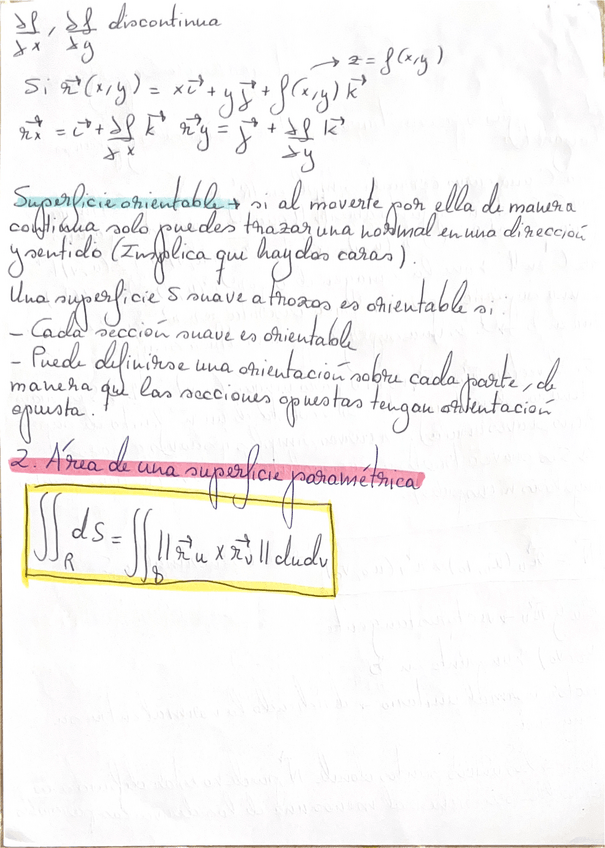 ∂f/∂x, ∂f/∂y discontinua
→ z = f(x,y)
Si r⃗(x,y) = x i⃗ + y j⃗ + f(x,y) k⃗
r⃗x = i⃗ + ∂f/∂x k⃗ r⃗y = j⃗ + ∂f/∂y k⃗
Superficie orientable → si al moverte por ella de manera
continua solo puedes trazar una normal en una dirección
y sentido (Implica que hay dos caras).
Una superficie S suave a trozos es orientable si:
- Cada sección suave es orientable
- Puede definirse una orientación sobre cada parte, de
manera que las secciones opuestas tengan orientación
opuesta.
2. Área de una superficie paramétrica
∬_R dS = ∬_D ||r⃗u x r⃗v|| du dv